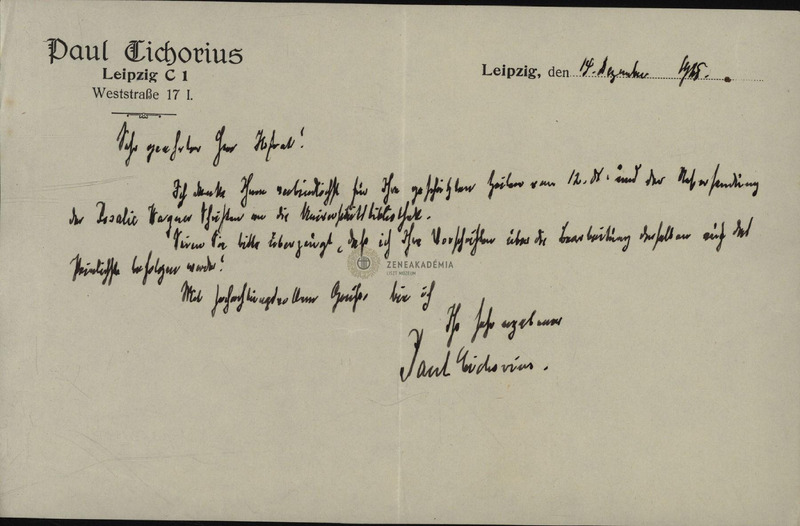 Paul Cichorius
Leipzig C 1
Weststraße 17 I.
Leipzig, den 14. Dezember 1925.
Sehr geehrter Herr Hofrat!
Ich danke Ihnen verbindlichst für Ihre geschätzten Zeilen vom 12. ds. und der Übersendung
der Rosalie Wagner Schriften an die Universitätsbibliothek.
Seien Sie bitte überzeugt, daß ich Ihre Vorschriften über die Bearbeitung derselben auf das
Peinlichste befolgen werde!
ZENEAKADÉMIA
LISZT MÚZEUM
Mit hochachtungsvollem Gruße bin ich
Ihr sehr ergebener
Paul Cichorius.